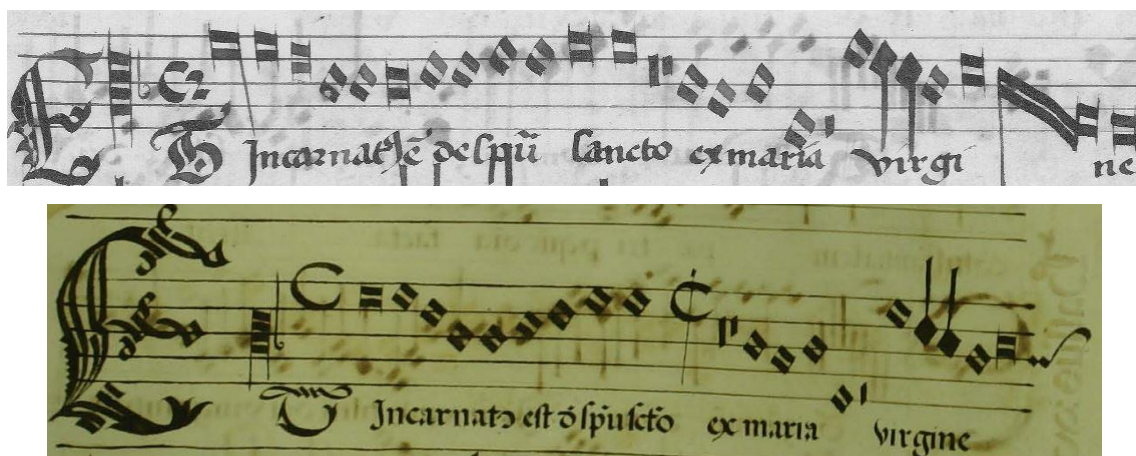 ET Incarnatꝯ ē de spū sancto ex maria virgi ne
ET Incarnatꝯ est d̄ sp̄u sct̄o ex maria virgine